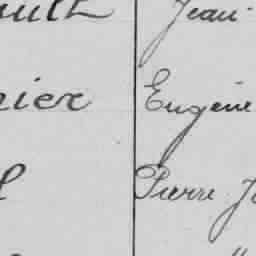 ault Jean
nier Eugène
l Pierre J